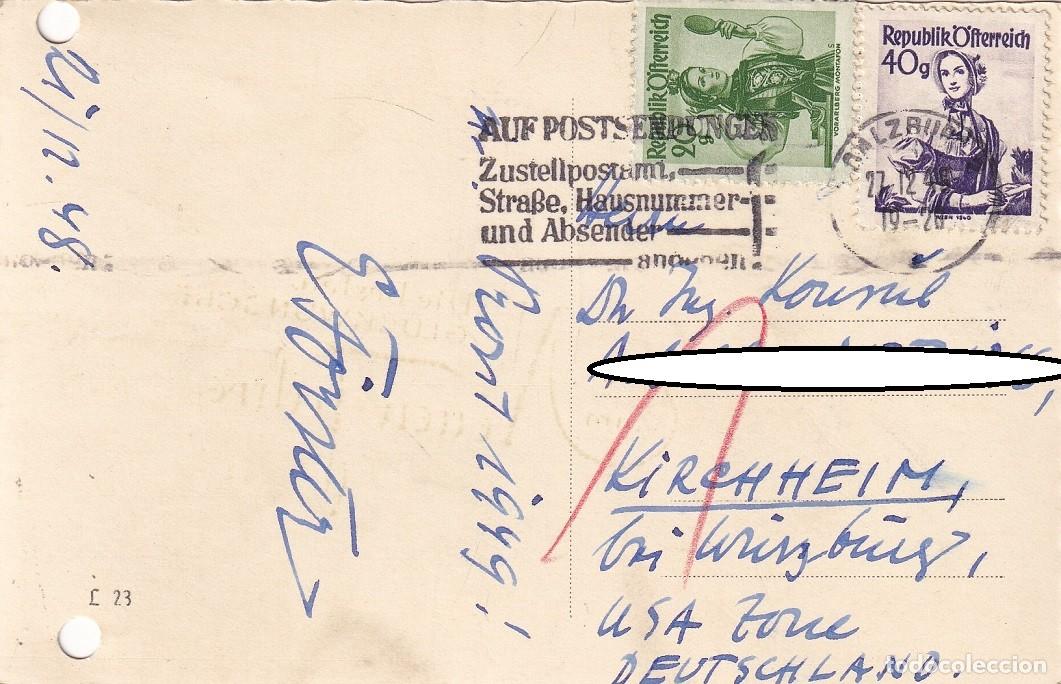 21/12.48.
Prost 1949!
Republik Österreich
20g
VORARLBERG MONTAFON
Republik Österreich
40g
WIEN 1840
SALZBURG
27.12.48
19-20
AUF POSTSENDUNGEN
Zustellpostamt,
Straße, Hausnummer
und Absender
angeben
Herrn
Dr. Ing. Konsul
KIRCHHEIM,
bei Würzburg,
USA Zone
DEUTSCHLAND.
L 23
todocoleccion